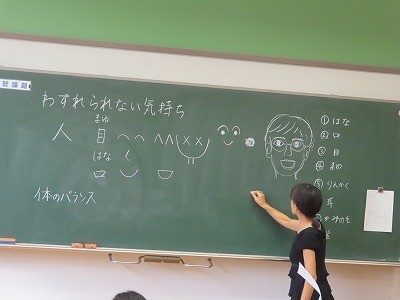 習課題
わすれられない気持ち
まゆ
人 目
はな く
口
体のバランス
①はな
②口
③目
④まゆ
⑤りんかく
耳
かみのそ